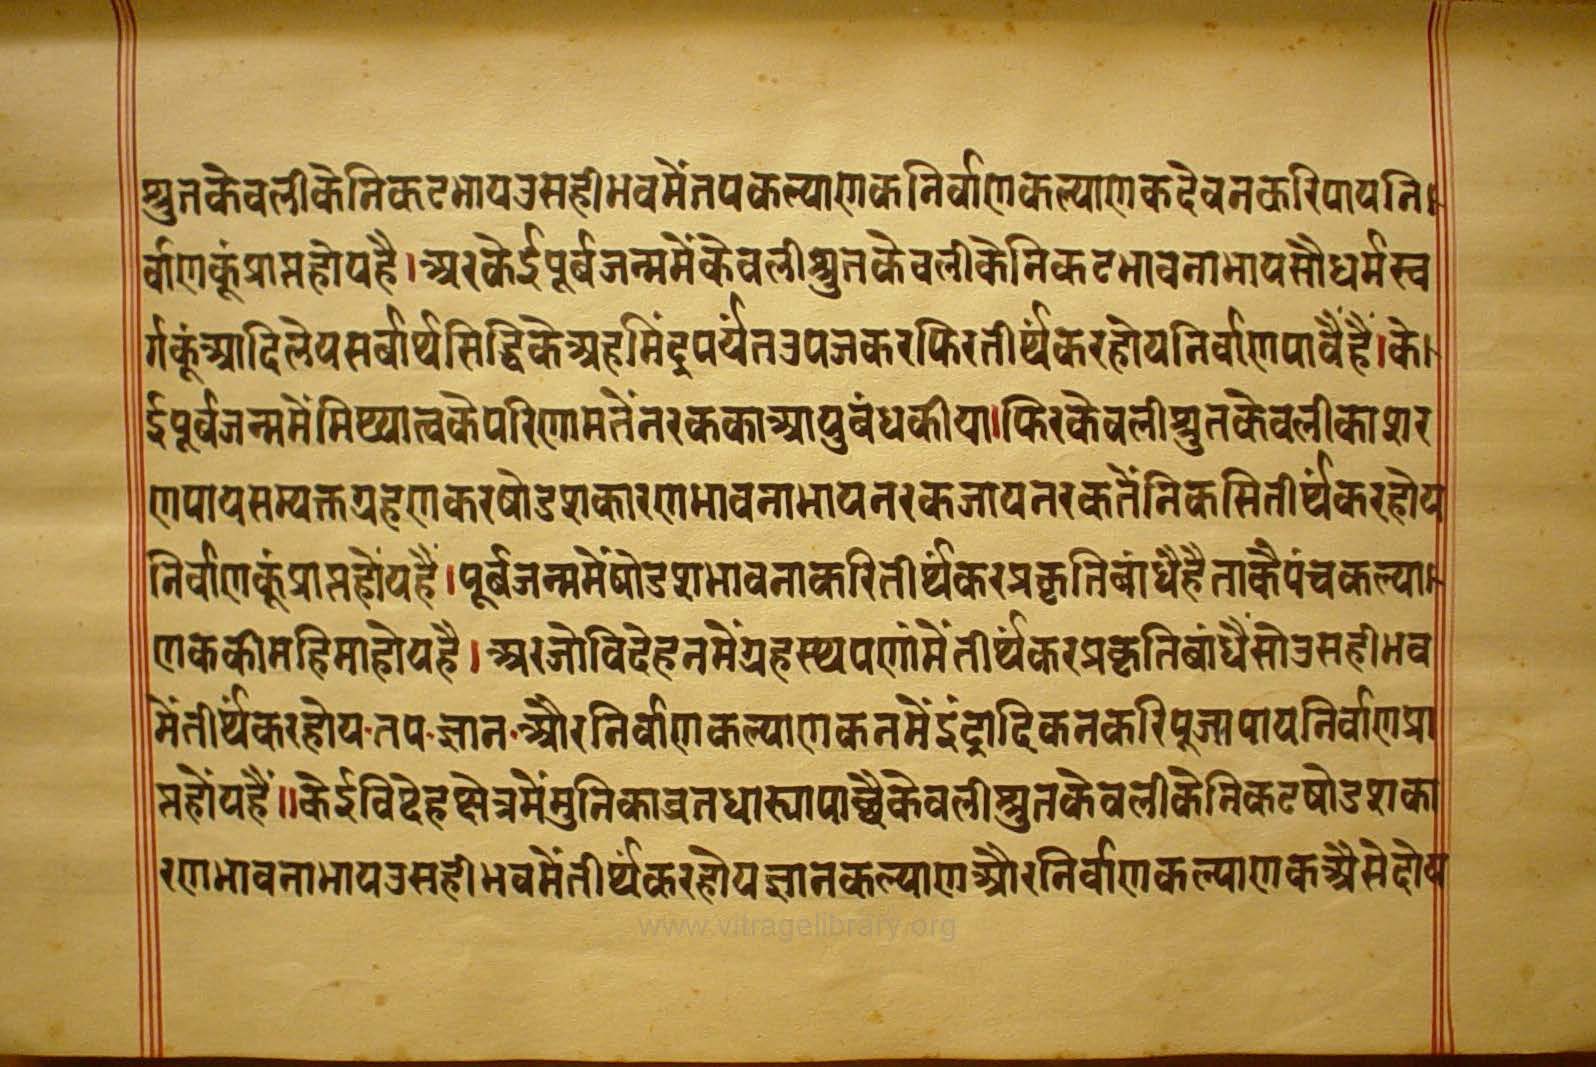 श्रुतकेवलीकेनिकटभायउसहीभवमेंतपकल्याणकनिर्वाणकल्याणकदेवनकरिपायनि।
र्वाणकूंप्राप्तहोयहै।अरकेईपूर्बजन्ममेंकेवलीश्रुतकेवलीकेनिकटभावनाभायसौधर्मस्व
र्गकूंआदिलेयसर्बार्थसिद्धिकेअहमिंद्रपर्यंतउपजकरफिरतीर्थंकरहोयनिर्वाणपावैंहैं।के।
ईपूर्वजन्ममेंमिथ्यात्वकेपरिणामतेंनरककाआयुबंधकीया।फिरकेवलीश्रुतकेवलीकाशर
णपायसम्यक्तग्रहणकरषोडशकारणभावनाभायनरकजायनरकतेंनिकसितीर्थंकरहोय
निर्वाणकूंप्राप्तहोंयहैं।पूर्बजन्ममेंषोडशभावनाकरितीर्थंकरप्रकृतिबांधैहैताकैपंचकल्या।
णककीमहिमाहोयहै।अरजोविदेहनमेंग्रहस्थपणांमेंतीर्थंकरप्रकृतिबांधैंसोउसहीभव
मेंतीर्थंकरहोय·तप·ज्ञान·औरनिर्वाणकल्याणकनमेंइंद्रादिकनकरिपूजापायनिर्वाणप्रा
प्तहोंयहैं॥केईविदेहक्षेत्रमेंमुनिकाव्रतधास्यापाछैकेवलीश्रुतकेवलीकेनिकटषोडशका
रणभावनाभायउसहीभवमेंतीर्थंकरहोयज्ञानकल्याणऔरनिर्वाणकल्याणकअैसेदोय
www.vitragelibrary.org